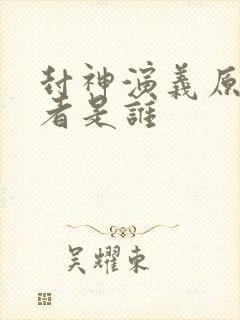 封神演義原
者是誰
吴耀東